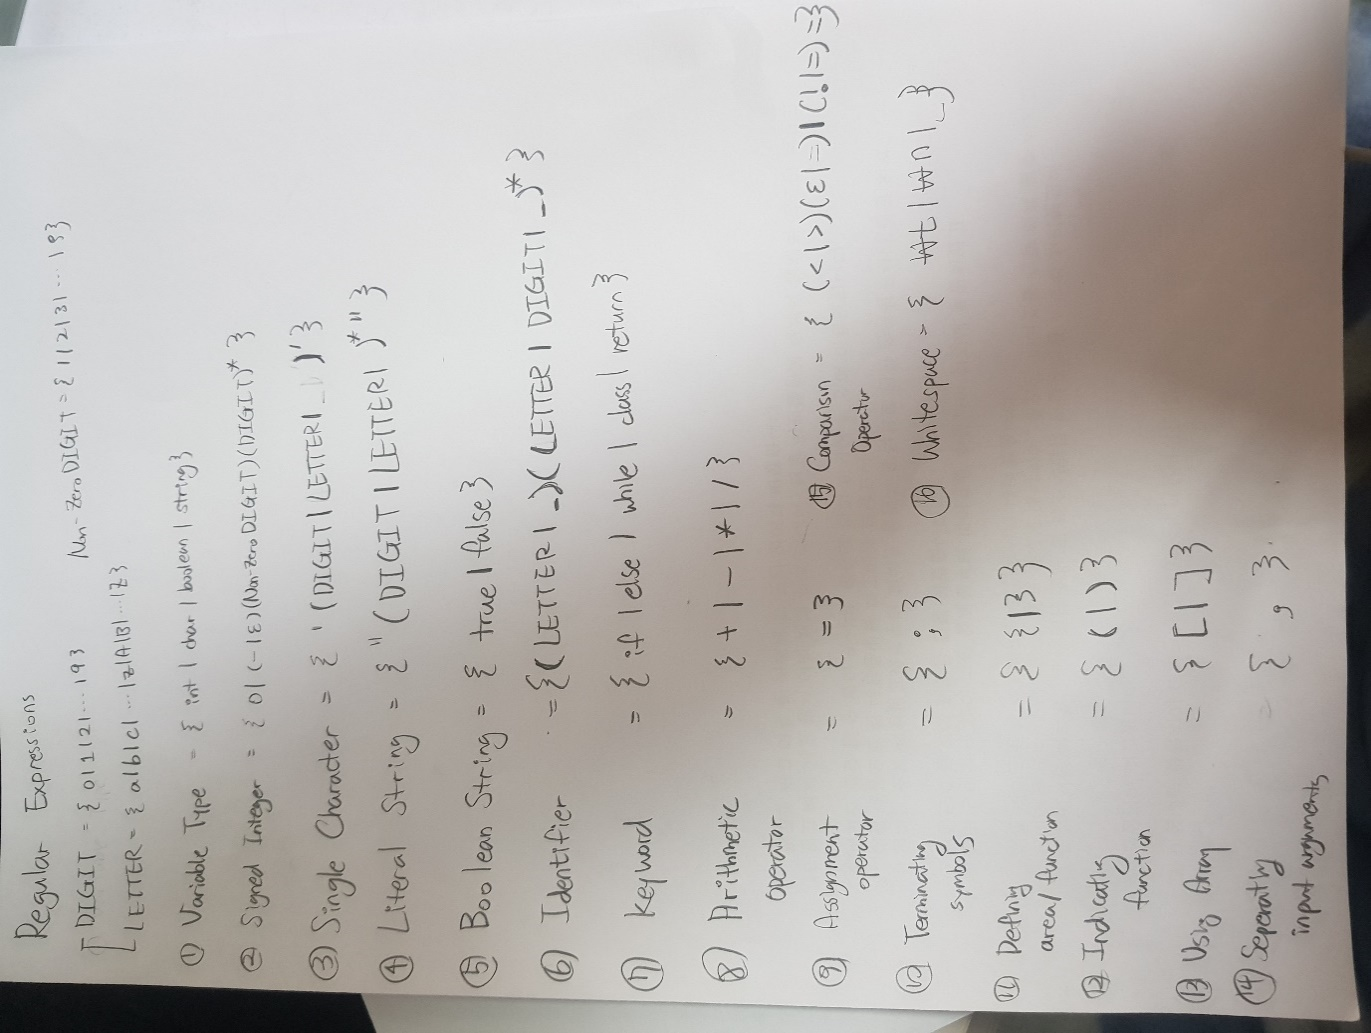 Regular Expressions
DIGIT = { 0|1|2|...|9} Non-Zero DIGIT = { 1|2|3|...|9}
LETTER = { a|b|c|...|z|A|B|...|Z}
① Variable Type = { int | char | boolean | string}
② Signed Integer = { 0|(-|ε)(Non-Zero DIGIT)(DIGIT)* }
③ Single Character = { '(DIGIT|LETTER| )'}
④ Literal String = { "(DIGIT|LETTER| )*"}
⑤ Boolean String = { true | false}
⑥ Identifier = {(LETTER|_)(LETTER|DIGIT|_)*}
⑦ keyword = { if | else | while | class | return}
⑧ Arithmetic operator = { + | - | * | / }
⑨ Assignment operator = { = }
⑩ Terminating symbols = { ; }
⑪ Defining area/function = { { | } }
⑫ Indicating function = { ( | ) }
⑬ Using Array = { [ | ] }
⑭ Seperating input arguments = { , }
⑮ Comparison Operator = { (<|>)(ε|=)|(!|=)=}
⑯ Whitespace = { ₩t | ₩n | ␣ }